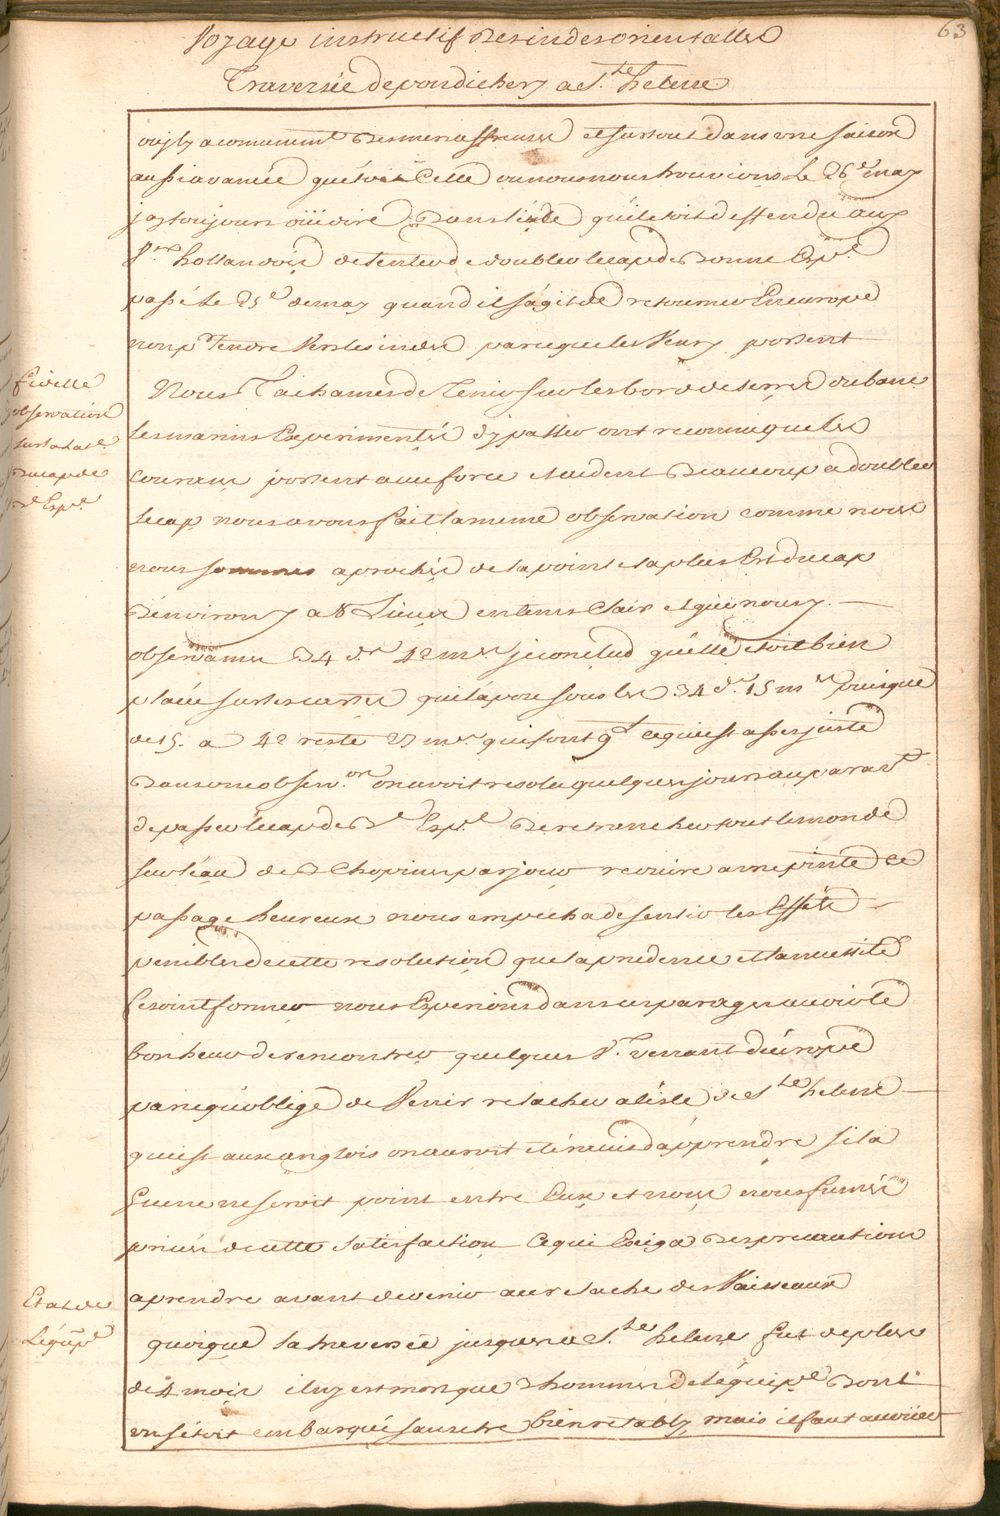 63
Voyage instructif Des indes orientalles
Traversée de pondichery a S.te helene
ou jly a comunem.t Des mers affreuses et surtout dans une saison
aussi avancée que étoit Celle ou nous nous trouvions Le 26.e may
j'ay toujours oüi dire Dans L'inde qu'il etoit deffendu aux
V.aux hollandois de tenter de doubler le cap de Bonne Esp.ce
passé Le 25.e de may quand il s'agit de retourner En europe
non p.r Tendre Vers les indes parce que les Vens y portent
Nous Tachames de Tenir sur les bords de terre ou banc
Les marins Experimentés d'y passer ont reconnu que les
Courans portent avec force et aident Beaucoup a doubler
Le cap nous avons fait la meme observation comme nous
nous sommes aprochés de la pointe la plus Est du cap
D'environ 7 a 8 Lieues en tems Clair et que nous y
observames 34 d.és 42 m.es je conclud qu'elle etoit bien
placée sur les cartes qui la pose sous les 34 d.és 15 m.es puisque
de 15. a 42 reste 27 m.es qui font 9 L ce qui est assez juste
Dans une observ.on on avoit resolu quelques jours auparav.t
de passer le cap de B.e Esp.ce De retrancher tout le monde
sur l'eau de 3 Chopines par jour reduire a une pinte ce
passage heureux nous empecha de sentir les Effets
penibles de cette resolution que la prudence et la necessité
feroint former nous Esperions dans ces parages avoir le
bonheur de rencontrer quelques V.x venant d'europe
parce qu'obligé de Venir relacher a l'isle de S.te helene
qui est aux anglois on auroit eté ravis d'apprendre si la
Guerre ne seroit point entre Eux et nous nous fumes
privés de cette satisfaction Ce qui Exigea Des precautions
a prendre avant de venir au relache des Vaisseaux
quoique la traversée jusques a S.te helene fut de plus
de 4 mois il n'y est mort que 3 hommes de L'équip.e Dont
un s'étoit embarqué sans etre bien retably mais il faut avoüer
fidelle
observation
sur la hau.r
Du cap de
B.e Esp.ce
Etat de
L'équip.e